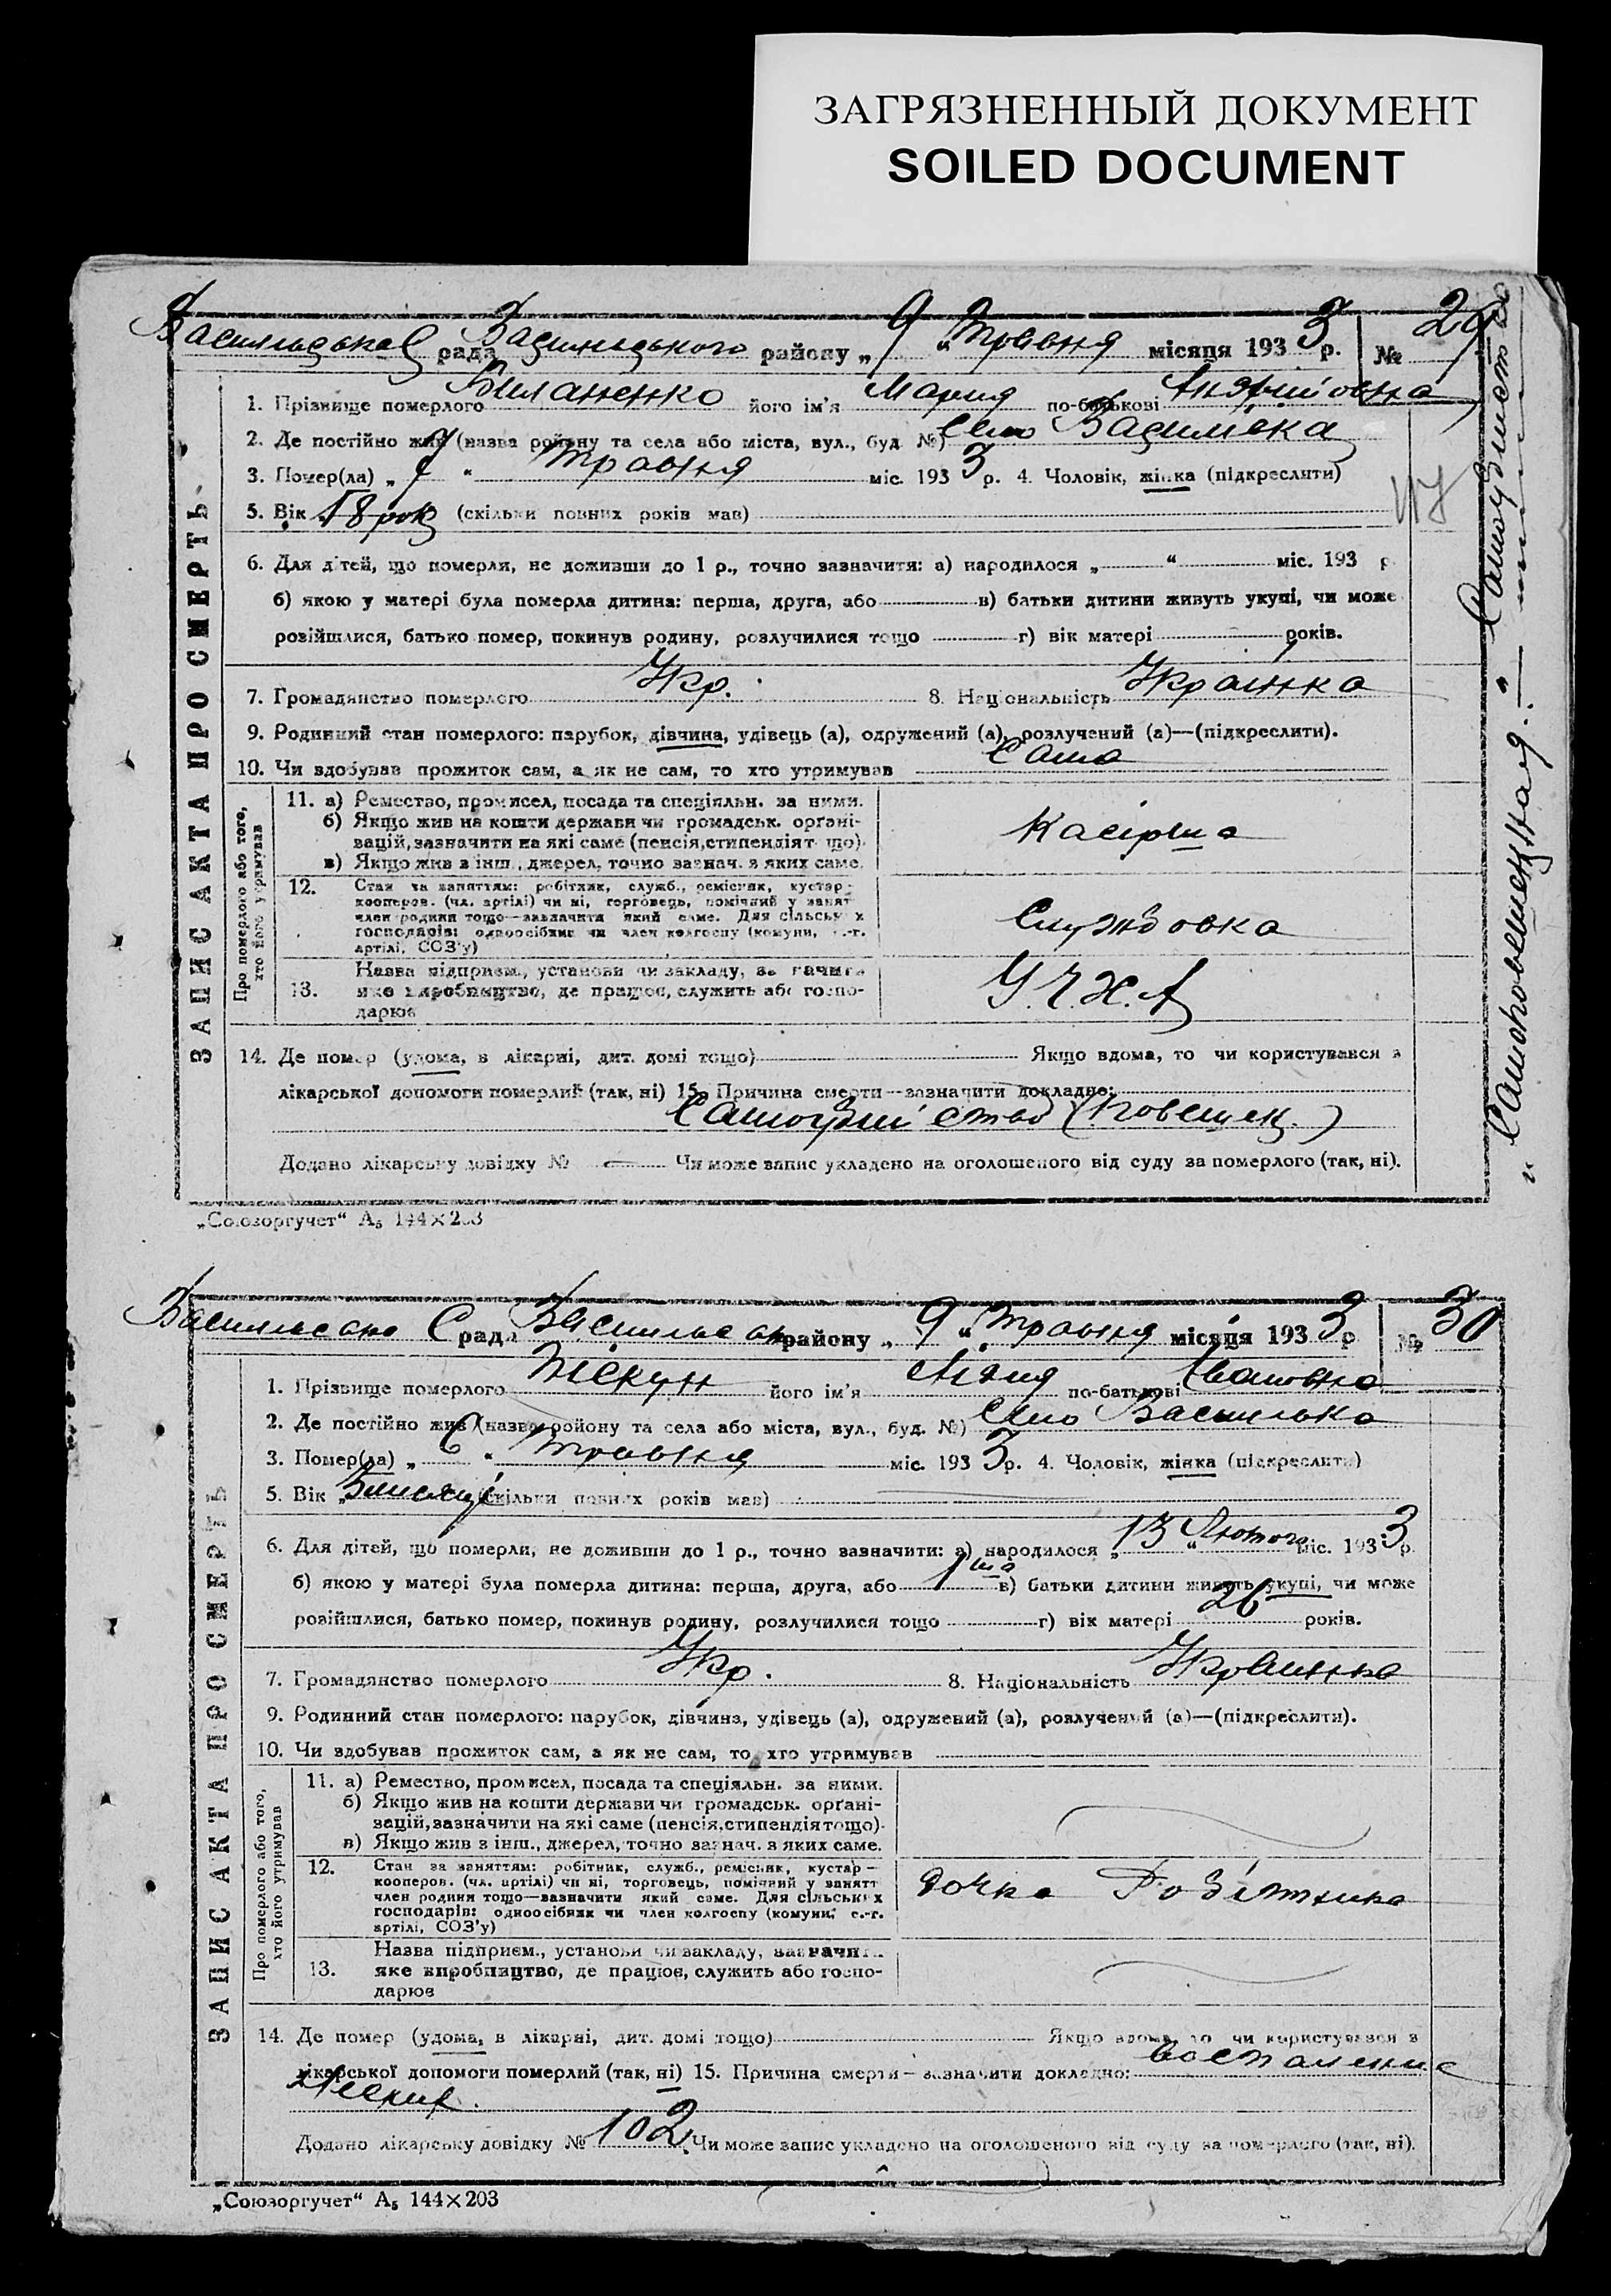 ЗАГРЯЗНЕННЫЙ ДОКУМЕНТ
SOILED DOCUMENT
рада района „9“ Травня місяця 1933 р. № 29
1. Прізвище померлого його ім'я Мария по-батькові
2. Де постійно жив (назва району та села або міста, вул., буд. №) Село
3. Помер(ла) „ “ травня міс. 1933 р. 4. Чоловік, жінка (підкреслити)
5. Вік 18 рок (скільки повних років мав)
6. Для дітей, що померли, не доживши до 1 р., точно зазначити: а) народилося „ “ міс. 193 р.
б) якою у матері була померла дитина: перша, друга, або в) батьки дитини живуть укупі, чи може
розійшлися, батько помер, покинув родину, розлучилися тощо г) вік матері років.
7. Громадянство померлого Укр. 8. Національність Украінка
9. Родинний стан померлого: парубок, дівчина, удівець (а), одружений (а), розлучений (а)—(підкреслити).
10. Чи здобував прожиток сам, а як не сам, то хто утримував Сама
Про померлого або того, хто його утримував
11. а) Ремество, промисел, посада та спеціяльн. за ними.
б) Якщо жив на кошти держави чи громадськ. органі-
зацій, зазначити на які саме (пенсія, стипендія тощо).
в) Якщо жив з інш., джерел, точно зазнач. з яких саме.
Касірша
12. Стан за заняттям: робітник, служб., ремісник, кустар-
кооперов. (чл. артілі) чи ні, торговець, помічний у занятт
член родини тощо—зазначити який саме. Для сільських
господарів: одноосібник чи член колгоспу (комуни, с.-г.
артілі, СОЗ'у)
Службовка
13. Назва підприєм., установи чи закладу, зазначити
яке виробництво, де працює, служить або госпо-
дарює
14. Де помер (удома, в лікарні, дит. домі тощо) Якщо вдома, то чи користувався з
лікарської допомоги померлий (так, ні) 15. Причина смерти—зазначити докладно:
Самоубийство (повешен.)
Додано лікарську довідку № — Чи може запис укладено на оголошеного від суду за померлого (так, ні).
ЗАПИС АКТА ПРО СМЕРТЬ
„Союзоргучет“ А₅ 144×203
С рада району „9“ травня місяця 1933 р № 30
1. Прізвище померлого його ім'я по-батькові Івановна
2. Де постійно жив (назва району та села або міста, вул., буд. №) Село Васильвка
3. Помер(ла) „6“ травня міс. 1933 р. 4. Чоловік, жінка (підкреслити)
5. Вік „3 місяці (скільки повних років мав)
6. Для дітей, що померли, не доживши до 1 р., точно зазначити: а) народилося „13“ Лютого міс. 1933 р.
б) якою у матері була померла дитина: перша, друга, або 1ша в) батьки дитини живуть укупі, чи може
розійшлися, батько помер, покинув родину, розлучилися тощо г) вік матері 26 років.
7. Громадянство померлого Укр. 8. Національність Украинка
9. Родинний стан померлого: парубок, дівчина, удівець (а), одружений (а), розлучений (а)—(підкреслити).
10. Чи здобував прожиток сам, а як не сам, то хто утримував
Про померлого або того, хто його утримував
11. а) Ремество, промисел, посада та спеціяльн. за ними.
б) Якщо жив на кошти держави чи громадськ. органі-
зацій, зазначити на які саме (пенсія, стипендія тощо).
в) Якщо жив з інш., джерел, точно зазнач. з яких саме.
12. Стан за заняттям: робітник, служб., ремісник, кустар—
кооперов. (чл. артілі) чи ні, торговець, помічний у занятт
член родини тощо—зазначити який саме. Для сільських
господарів: одноосібник чи член колгоспу (комуни, с.-г.
артілі, СОЗ'у)
дочка Робітника
13. Назва підприєм., установи чи закладу, зазначити
яке виробництво, де працює, служить або госпо-
дарює
14. Де помер (удома, в лікарні, дит. домі тощо) Якщо вдома, то чи користувався з
лікарської допомоги померлий (так, ні) 15. Причина смерти—зазначити докладно: Воспаление
легких.
Додано лікарську довідку № 102 Чи може запис укладено на оголошеного від суду за померлого (так, ні).
ЗАПИС АКТА ПРО СМЕРТЬ
„Союзоргучет“ А₅ 144×203